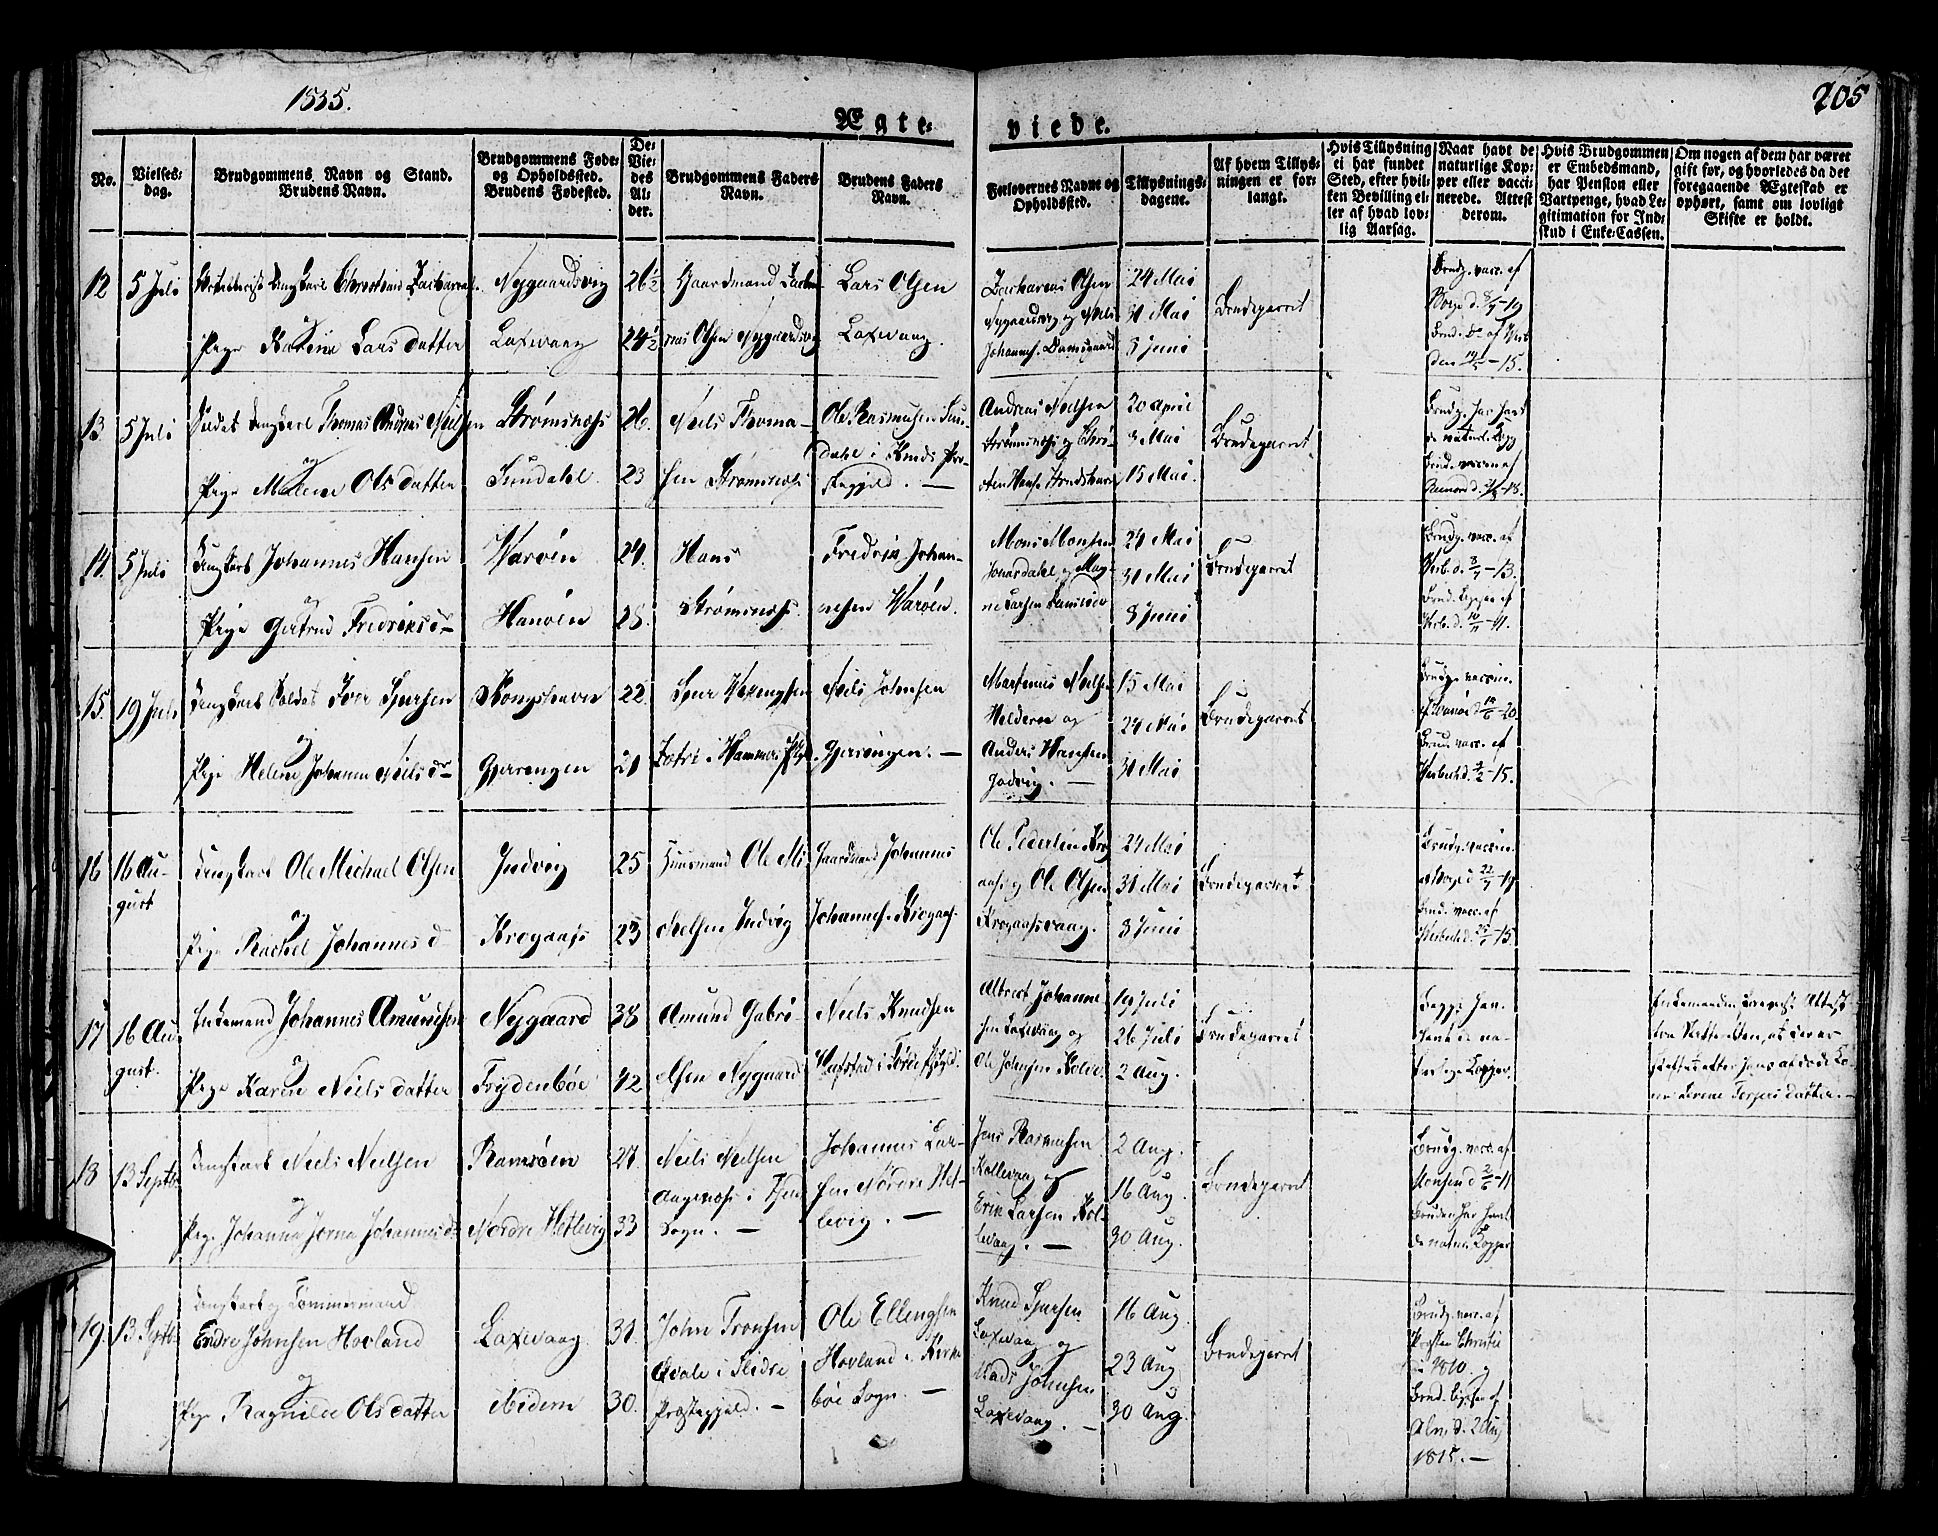 1835.
205
Ægte-
viede.
No.
Vielses-
dag.
Brudgommens Navn og Stand.
Brudens Navn.
Brudgommens Føde-
og Opholdssted.
Brudens Fødested.
De
Vie-
des
Al-
der.
Brudgommens Faders
Navn.
Brudens Faders
Navn.
Forlovernes Navne og
Opholdssted.
Tillysnings-
dagene.
Af hvem Tillys-
ningen er for-
langt.
Hvis Tillysning
ei har fundet
Sted, efter hvil-
ken Bevilling el-
ler af hvad lov-
lig Aarsag.
Naar havt de
naturlige Kop-
per eller vacci-
nerede. Attest
derom.
Hvis Brudgommen
er Embedsmand,
har Pension eller
Vartpenge, hvad Le-
gitimation for Ind-
skud i Enke-Cassen.
Om nogen af dem har været
gift før, og hvorledes da det
foregaaende Ægteskab er
ophørt, samt om lovligt
Skifte er holdt.
12
5 Juli
Ungkarl Christian Zacharias.
og
Pige Karine Larsdatter
Nygaardsvig
Laxevaag
26½
24½
Gaardmand Zacha-
rias Olsen Nygaardsvig
Lars Olsen
Laxevaag.
Zacharias Olsen
Nygaardsvig og Niels
Johannes. Damsgaard
24 Mai
31 Mai
8 Juni
Brudeparret
Brudg. vacc. af
d. 8/7-19
Brud. do af
den -15.
13
5 Juli
Soldat Ungkarl Thomas Andreas Nielsen
og
Pige Malene Olsdatter
Strømsnæss
Sundahl
26.
23
Niels Thoma-
sen Strømsnæss
Ole Rasmusen Sun-
dahl i Kinds Præ-
stegjeld. —
Andreas Nielsen
Strømsnæss og
20 April
3 Mai
15 Mai.
Brudeparret
Brudg. har havt
de naturl. Kopp
Brud. vaccin af
-18.
14.
5 Juli
Ungkarl Johannes Hansen
og
Pige Gertrud Fredriksdr
Warøen
Hanøen
24.
28.
Hans
Strømsnæss.
Fredrik Johan-
nesen Warøen.
Mons Monsen
Jonasdahl og Mag-
ne Larsen
24 Mai
31 Mai
8 Juni
Brudeparret
Brudg. vacc. af
d. 8/7-13.
Brud. Kopper af
d. -11.
15.
19 Juli
Ungkarl Soldat Iver Siursen
og
Pige Helene Johanne Nielsdr
Kongshavn
Gjeraengen
22.
21
Siur
i Hammers
Niels Johnsen
Gjeraengen. —
Martinus Nielsen
og
Anders Hansen
Jadvig. —
15 Mai
24 Mai
31 Mai
Brudeparret
Brudg. vaccin.
-20.
Brud. vacc. af
-15.
16
16 Au-
gust
Ungkarl Ole Michael Olsen
og
Pige Rachel Johannesd
Indvig
Krogaass
25
23
Huusmand Ole Mi-
Nielsen Indvig
Gaardmand Johannes
Johannes. Krogaas.
Ole Pedersen Krog-
aas og Ole Olsen
Krogaasvaag.
24 Mai
31 Mai
8 Juni
Brudeparret
Brudg. vaccin.
-19.
Brud. vacc. af
-15.
17
16 Au-
gust.
Enkemand Johannes Amundsen
og
Pige Karen Nielsdatter
Nygaard
Frydenbøe
38
42
Amund Gabri-
elsen Nygaard
Niels Knudsen
Hafstad i Førde
Albert Johanne-
sen Laxevaag og
Ole Johnsen
19 Juli
26 Juli
2 Aug.
Brudeparret
Begge har
havt de na-
turlige Kopper
Enkemanden Attest
fra Skifteretten, at der er
skiftet efter hans afdøde Ko-
ne Torgersdatter. —
18
13 Septbr
Ungkarl Niels Nielsen
og
Pige Johanna Jorna Johannesd
Ramsøen
Nordre Hetlevig
27
33
Niels Nielsen
i
Sogn. —
Johannes Lar-
sen Nordre Het-
levig. —
Jens Rasmusen
Kollevaag og
Erik Larsen Kol-
levaag. —
2 Aug.
16 Aug.
30 Aug.
Brudeparret
Brudg. vacc. af
-11
Bruden har havt
de natur. Kopper
19.
13 Septb.
Ungkarl og Tømmermand
Endre Johnsen Hovland
og
Pige Ragnilde Olsdatter
Laxevaag
Ibidem
31.
30.
John Tronsen
i Slidre
Præstegjeld. —
Ole Ellingsen
Hovland i Kirke-
bøe Sogn. —
Knud Siursen
Laxevaag og
Mads Johnsen
Laxevaag. —
16 Aug.
23 Aug
30 Aug.
Brudeparret
Brudg. vacc. af
Provsten Christie
1810. og
Brud. ligesaa af
d. 2 Aug
1815. —